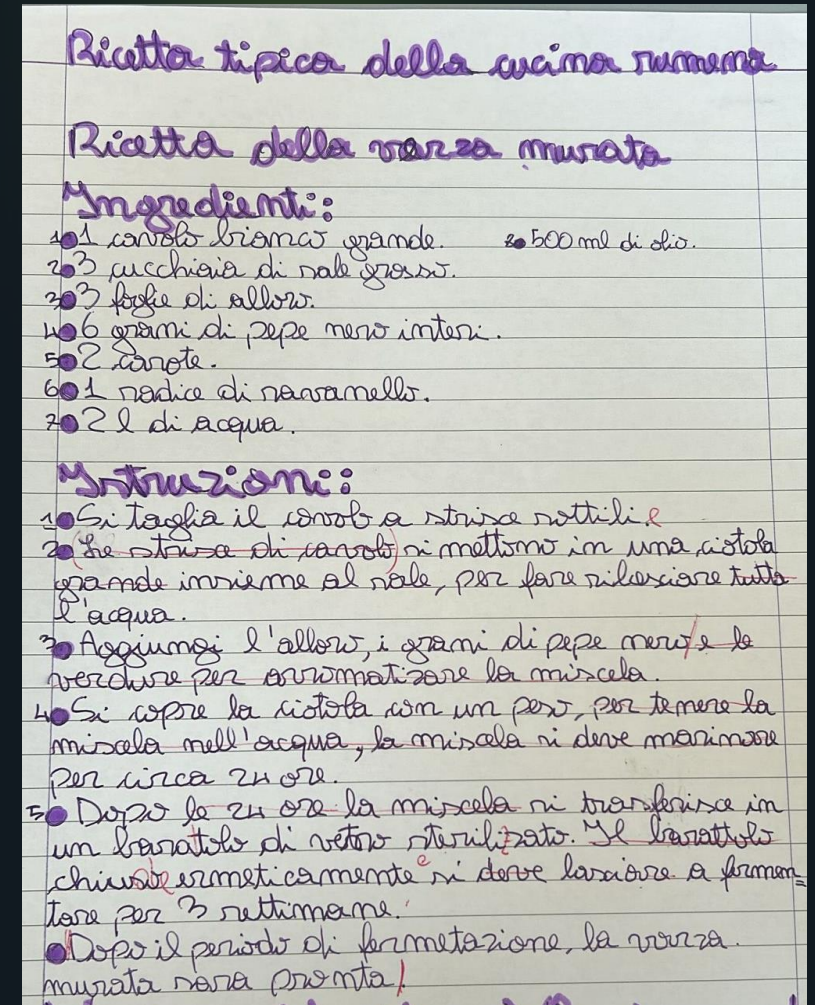 Ricetta tipica della cucina rumena
Ricetta della varza murata
Ingredienti:
1• 1 cavolo bianco grande. 8• 500 ml di olio.
2• 3 cucchiaia di sale grosso.
3• 3 foglie di alloro.
4• 6 grani di pepe nero interi.
5• 2 carote.
6• 1 radice di ravanello.
7• 2 l di acqua.
Istruzioni:
1• Si taglia il cavolo a strisce sottili e
2• (Le strisce di cavolo) si mettono in una ciotola
grande insieme al sale, per fare rilasciare tutta
l'acqua.
3• Aggiungi l'alloro, i grani di pepe nero/e le
verdure per arromatizare la miscela.
4• Si copre la ciotola con un peso, per tenere la
miscela nell'acqua, la miscela si deve marinare
per circa 24 ore.
5• Dopo le 24 ore la miscela si trasferisce in
un baratolo di vetro sterilizzato. Il barattolo
ermeticamente e si deve lasciare a fermen=
tare per 3 settimane.
• Dopo il periodo di fermetazione, la varza
murata sara pronta!